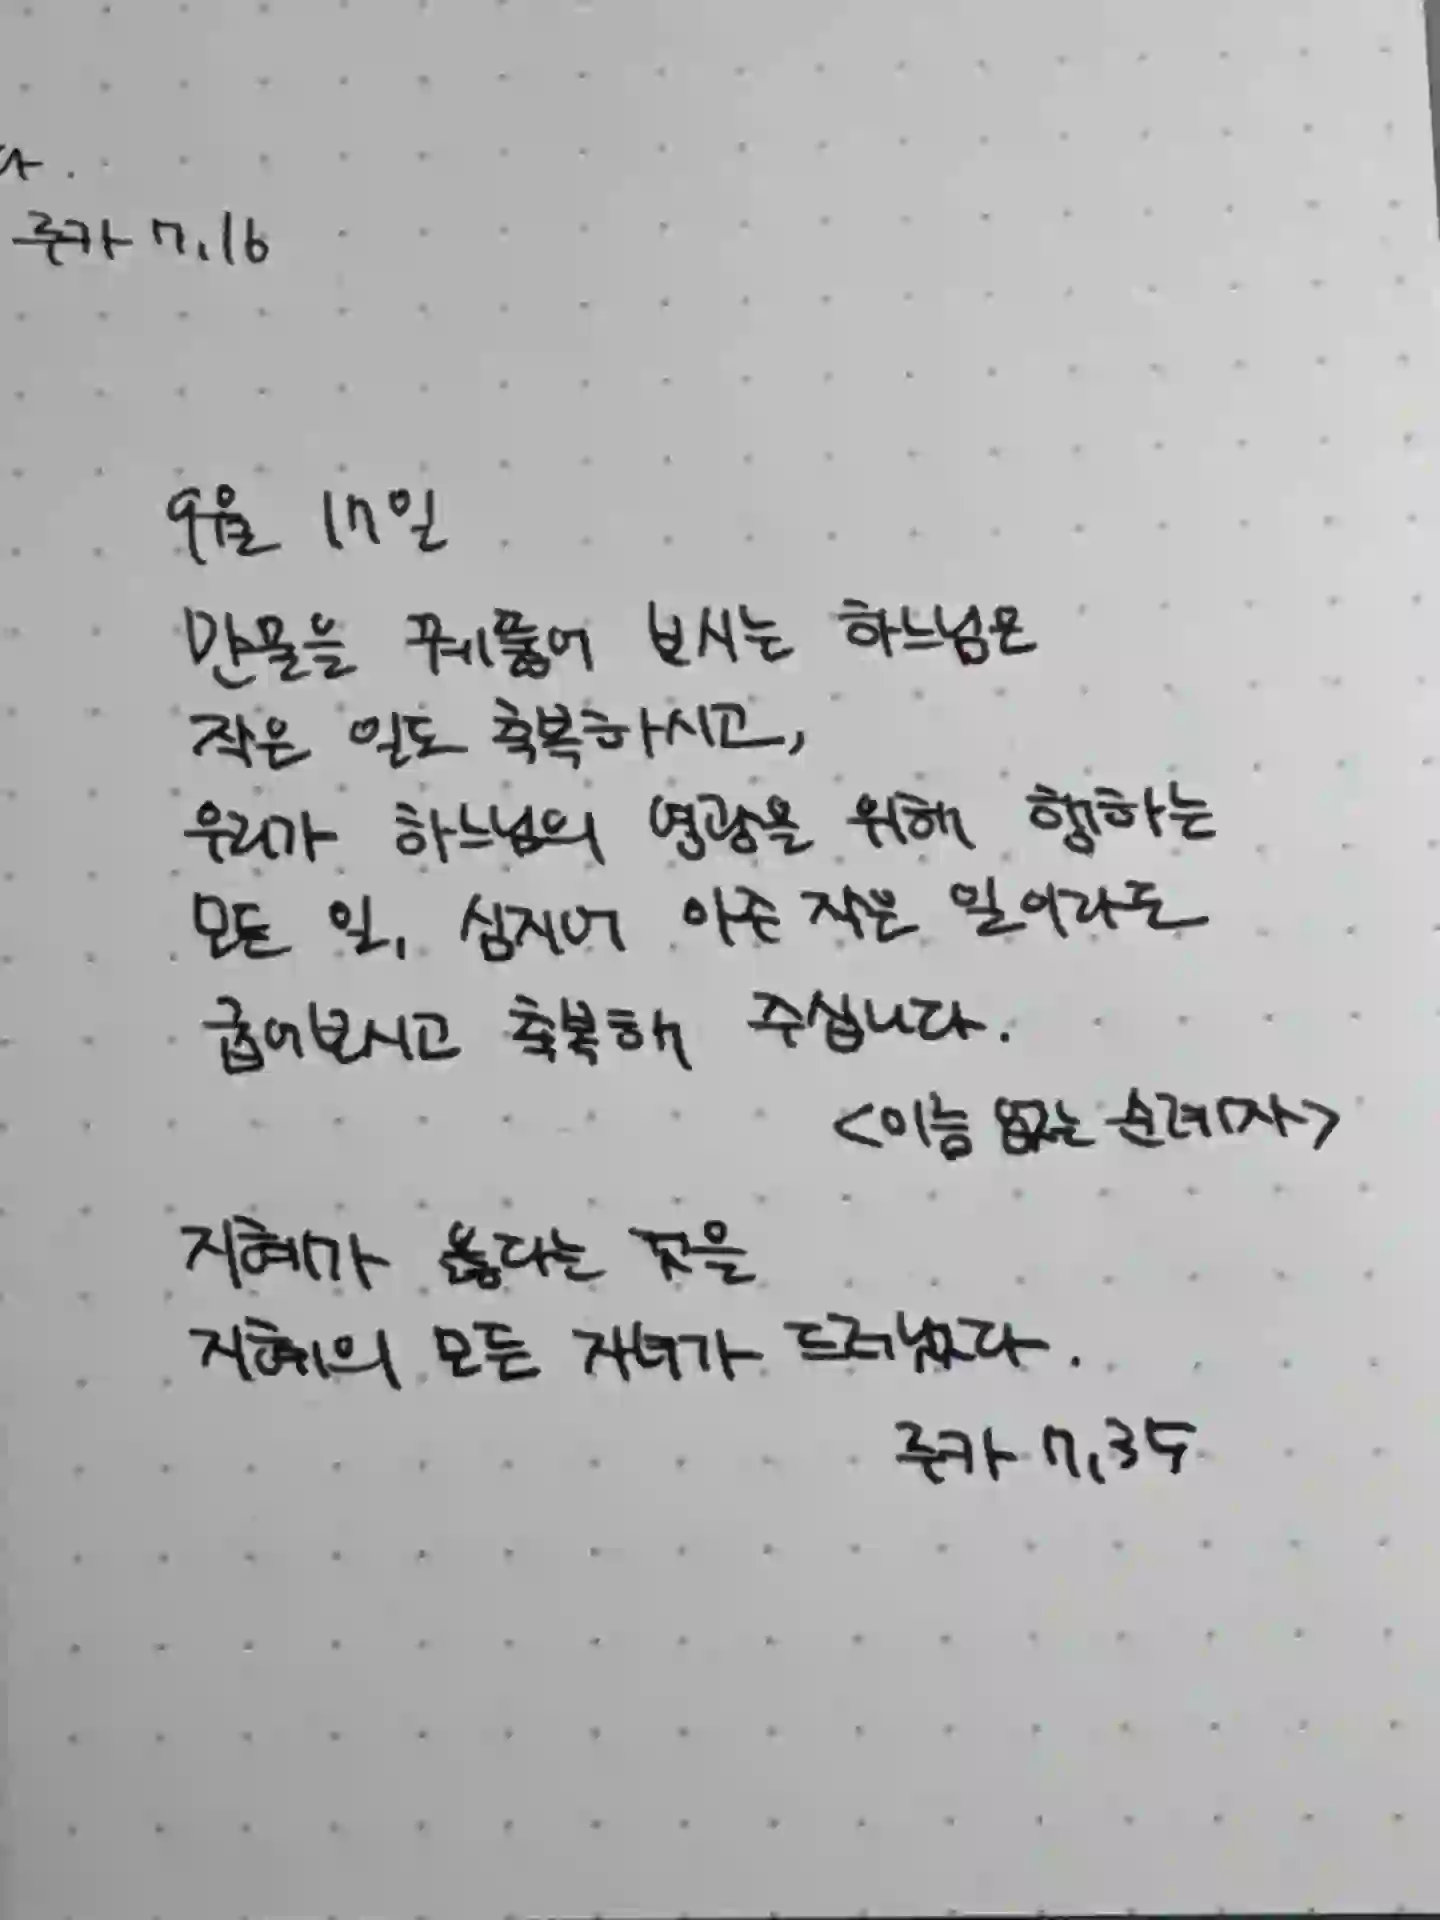 다.
루카 7,16
9월 17일
만물을 꿰뚫어 보시는 하느님은
작은 일도 축복하시고,
우리가 하느님의 영광을 위해 행하는
모든 일, 심지어 아주 작은 일이라도
굽어보시고 축복해 주십니다.
<이름 없는 순례자>
지혜가 옳다는 것을
지혜의 모든 자녀가 드러냈다.
루카 7,35